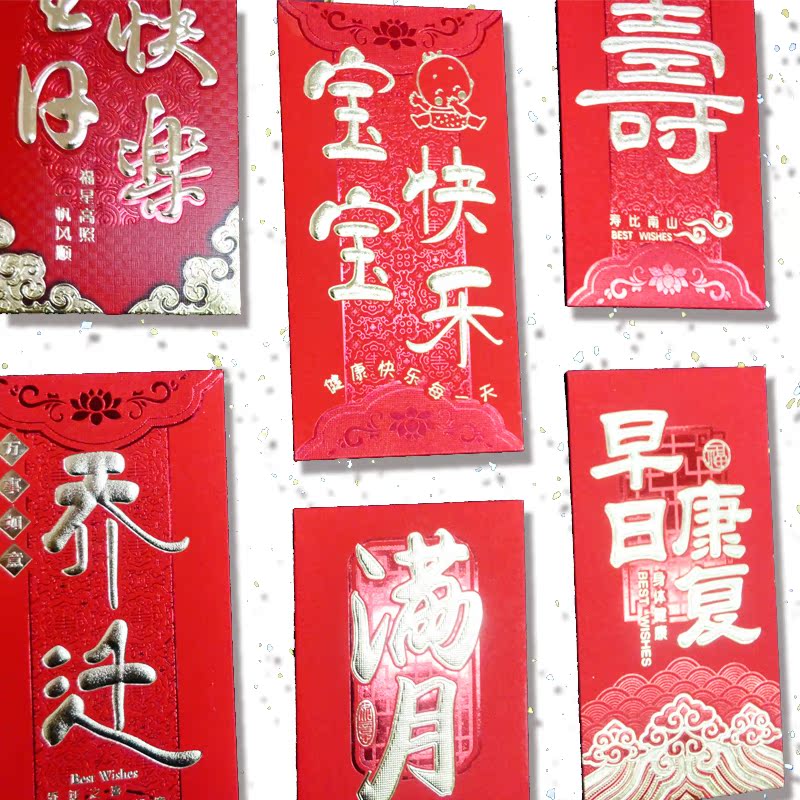 生日
快樂
福星高照
帆风顺
宝宝
快乐
健康快乐每一天
壽
寿比南山
BEST WISHES
万事如意
乔迁
Best Wishes
乔迁之
满月
早日
福
康复
身体健康
BEST WISHES